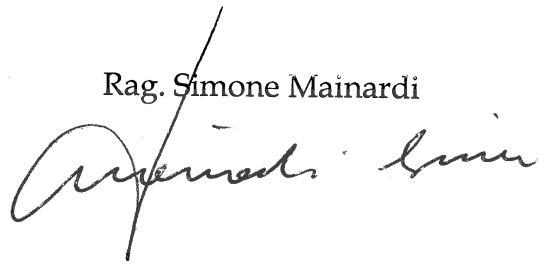 Rag. Simone Mainardi
Mainardi Simone